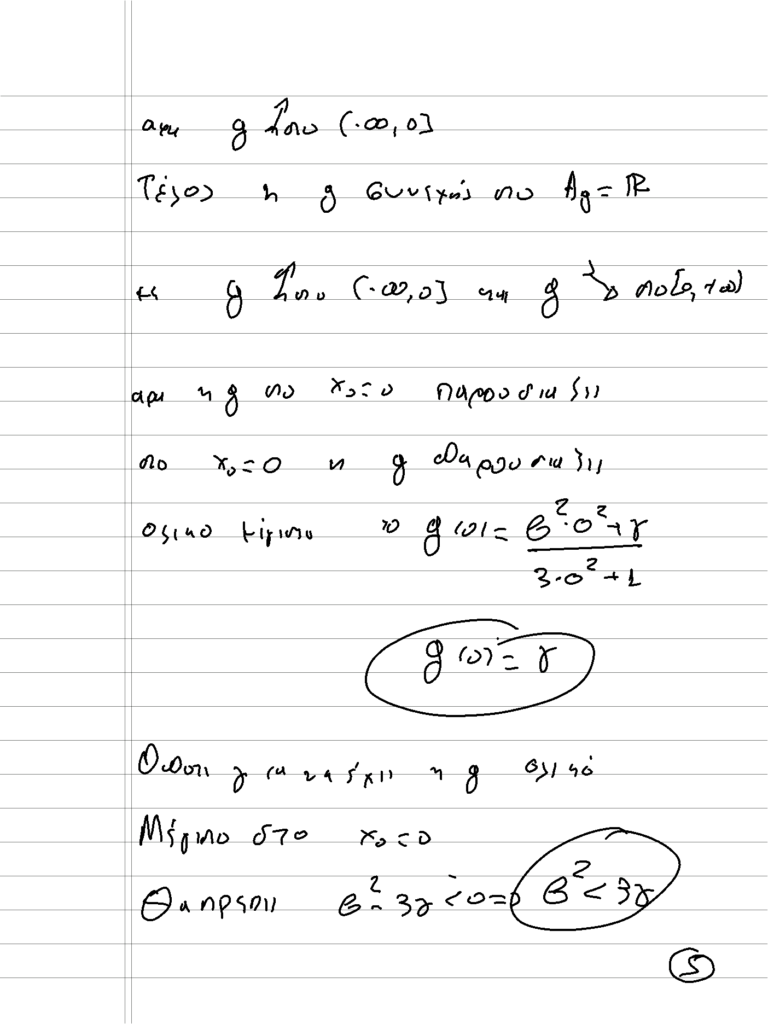 αρα g ↑ στο (-∞, 0]
Τέλος η g συνεχής στο Ag = ℝ
g ↑ στο (-∞, 0] και g ↘ στο [0, +∞)
αρα η g στο x₀ = 0 παρουσιάζει
στο x₀ = 0 η g παρουσιάζει
ολικο μέγιστο το g(0) = (β²·0² + γ)/(3·0² + 1)
g(0) = γ
Οπότε για να έχει η g ολικό
Μέγιστο στο x₀ = 0
Θα πρέπει β² - 3γ < 0 ⇒ β² < 3γ
5